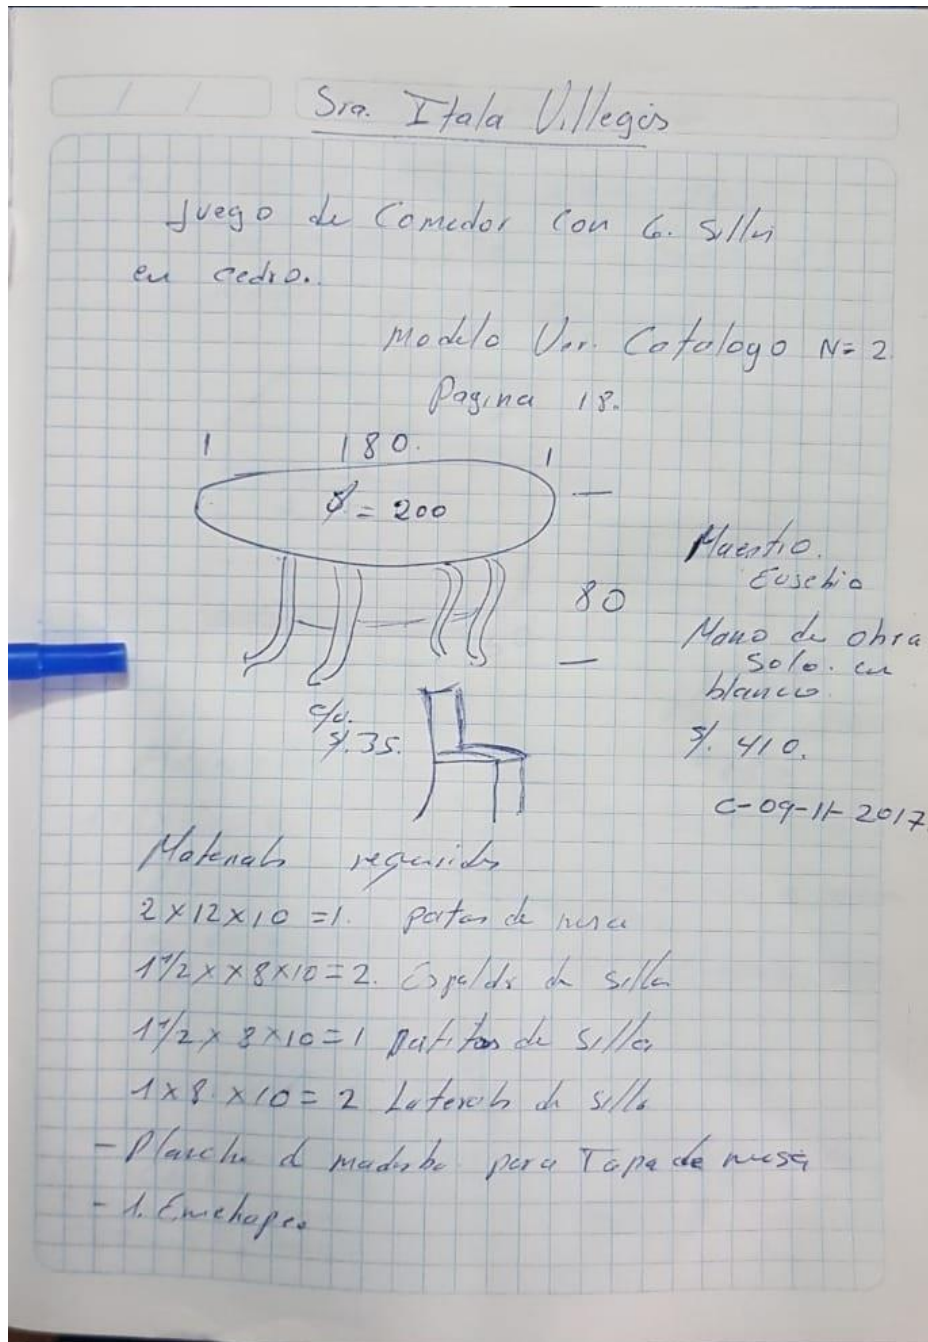 Sra. Itala Villegas
Juego de Comedor con 6. Sillas
en cedro.
Modelo Ver. Catalogo N= 2
Pagina 18.
1 180. 1
Ø = 200
80
Maestro.
Eusebio
Mano de obra
Solo. en
blanco.
S/. 410.
C-09-11-2017
c/u.
S/. 35.
Materials requeridos
2 x 12 x 10 = 1. patas de mesa
1 1/2 x x 8 x 10 = 2. Espaldar de silla
1 1/2 x 8 x 10 = 1 Patitas de Silla
1 x 8 x 10 = 2 Laterals de silla
- Plancha d para Tapa de mesa
- 1. Enchape